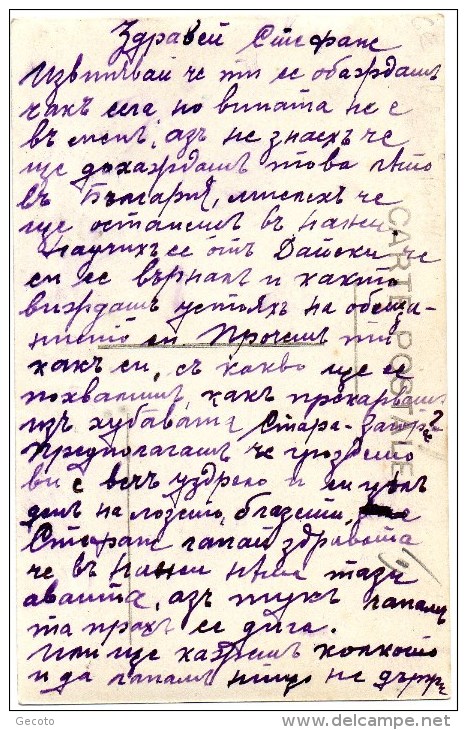 Здравей Стефане
Извинявай че ти се обаждамъ
чакъ сега но вината не е
въ менъ, азъ не знаехъ че
ще дохаждашъ това лѣто
въ България, мислехъ че
ще останешъ въ
Научихъ се отъ Дайски че
си се върналъ и както
виждашъ устояхъ на обеща-
нието си Прочее ти
какъ си, съ какво ще се
похвалишъ, какъ прекарвашъ
изъ хубавата Стара-Загора?
Предполагамъ че гроздето
ви е вечъ узрело и си цѣлъ
день на лозето, блазети,
Стефане лапай здравата
че въ нѣма тази
авантa, азъ тукъ лапамъ
та прахъ се дига.
Или ще кажешъ колкото
и да лапамъ нищо не държи
CARTE POSTALE
Gecoto
www.delcampe.net